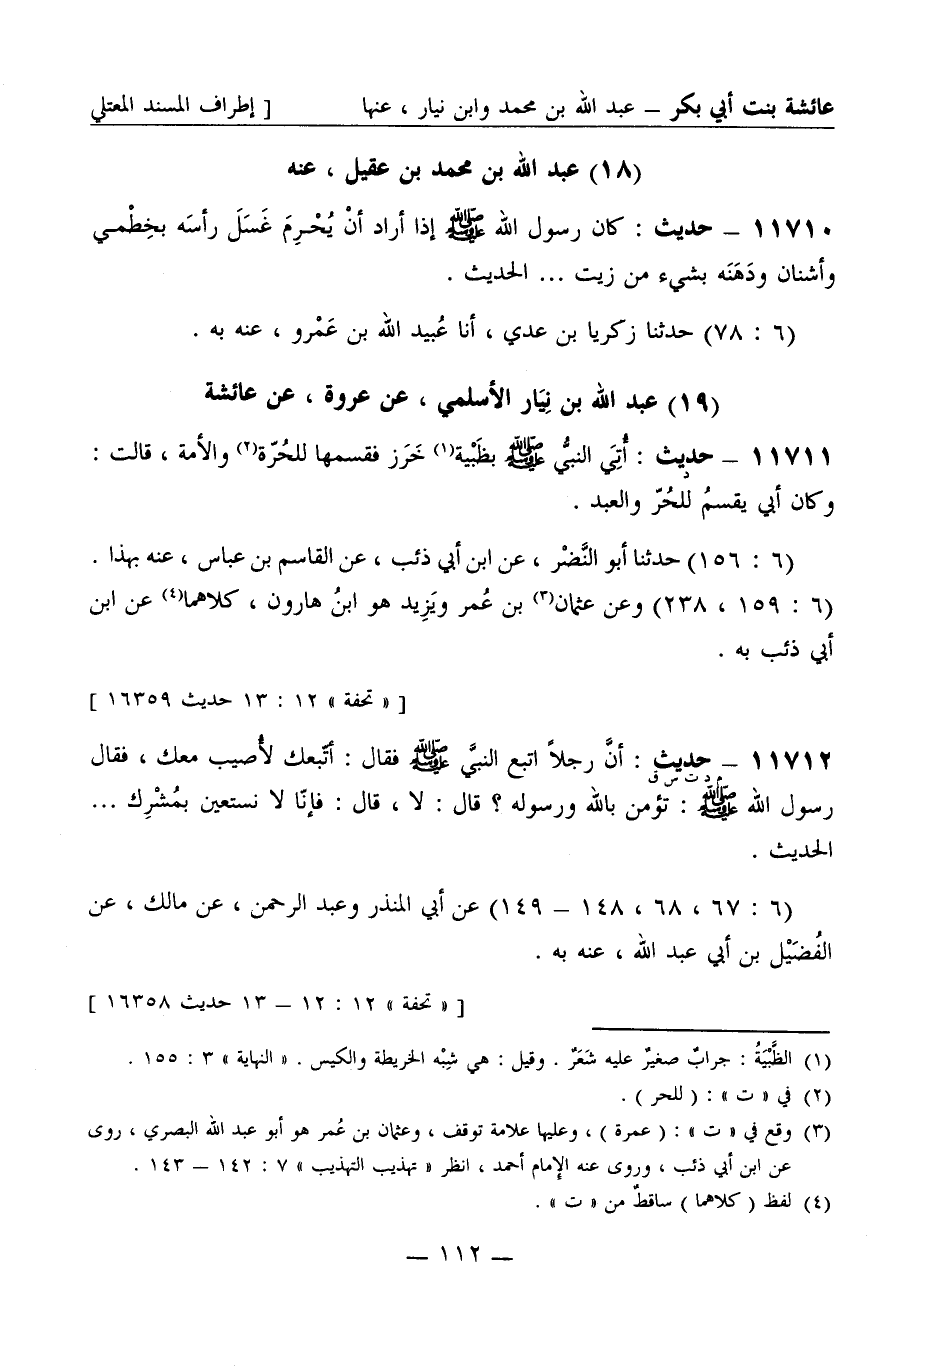 عائشة بنت أبي بكر – عبد الله بن محمد وابن نيار ، عنها [ إطراف المسند المعتلي
(١٨) عبد الله بن محمد بن عقيل ، عنه
١١٧١٠ – حديث : كان رسول الله ﷺ إذا أراد أنْ يُحْرِمَ غَسَلَ رأسَه بخِطْمي
وأشنان ودَهَنَه بشيء من زيت ... الحديث .
(٦ : ٧٨) حدثنا زكريا بن عدي ، أنا عُبيد الله بن عَمْرو ، عنه به .
(١٩) عبد الله بن نِيَار الأسلمي ، عن عروة ، عن عائشة
١١٧١١ – حديث : أُتِيَ النبيُّ ﷺ بظَبْية(١) خَرَز فقسمها للحُرّة(٢) والأمة ، قالت :
د
وكان أبي يقسمُ للحُرّ والعبد .
(٦ : ١٥٦) حدثنا أبو النَّضْر ، عن ابن أبي ذئب ، عن القاسم بن عباس ، عنه بهذا .
(٦ : ١٥٩ ، ٢٣٨) وعن عثمان(٣) بن عُمر ويَزِيد هو ابنُ هارون ، كلاهما(٤) عن ابن
أبي ذئب به .
[ « تحفة » ١٢ : ١٣ حديث ١٦٣٥٩ ]
١١٧١٢ – حديث : أنَّ رجلاً اتبع النبيَّ ﷺ فقال : أتّبعك لأُصيب معك ، فقال
م د ت س ق
رسول الله ﷺ : تؤمن بالله ورسوله ؟ قال : لا ، قال : فإنّا لا نستعين بمُشْرِك ...
الحديث .
(٦ : ٦٧ ، ٦٨ ، ١٤٨ – ١٤٩) عن أبي المنذر وعبد الرحمن ، عن مالك ، عن
الفُضَيْل بن أبي عبد الله ، عنه به .
[ « تحفة » ١٢ : ١٢ – ١٣ حديث ١٦٣٥٨ ]
(١) الظَّبْيَةُ : جرابٌ صغيرٌ عليه شَعَرٌ . وقيل : هي شِبْه الخريطة والكيس . « النهاية » ٣ : ١٥٥ .
(٢) في « ت » : ( للحر ) .
(٣) وقع في « ت » : ( عمرة ) ، وعليها علامة توقف ، وعثمان بن عُمر هو أبو عبد الله البصري ، روى
عن ابن أبي ذئب ، وروى عنه الإمام أحمد ، انظر « تهذيب التهذيب » ٧ : ١٤٢ – ١٤٣ .
(٤) لفظ ( كلاهما ) ساقطٌ من « ت » .
– ١١٢ –